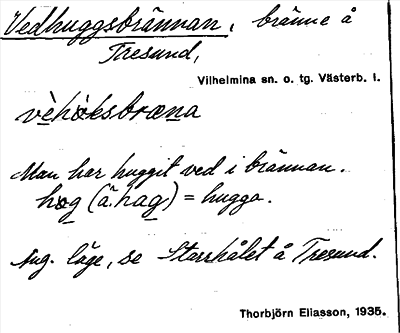 Vedhuggsbrännan, bränne å
Tresund,
Vilhelmina sn. o. tg. Västerb. l.
vèhòksbræna
Man har huggit ved i brännan.
hog (ä. hag) = hugga.
Ang. läge, se Starrhålet å Tresund.
Thorbjörn Eliasson, 1935.